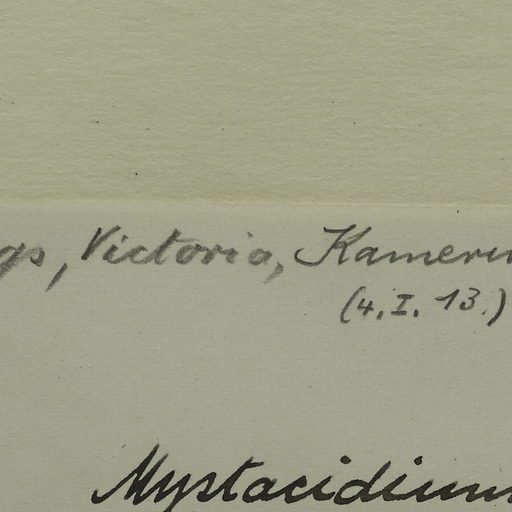 gs, Victoria, Kamerun
(4. I. 13.)
Mystacidium